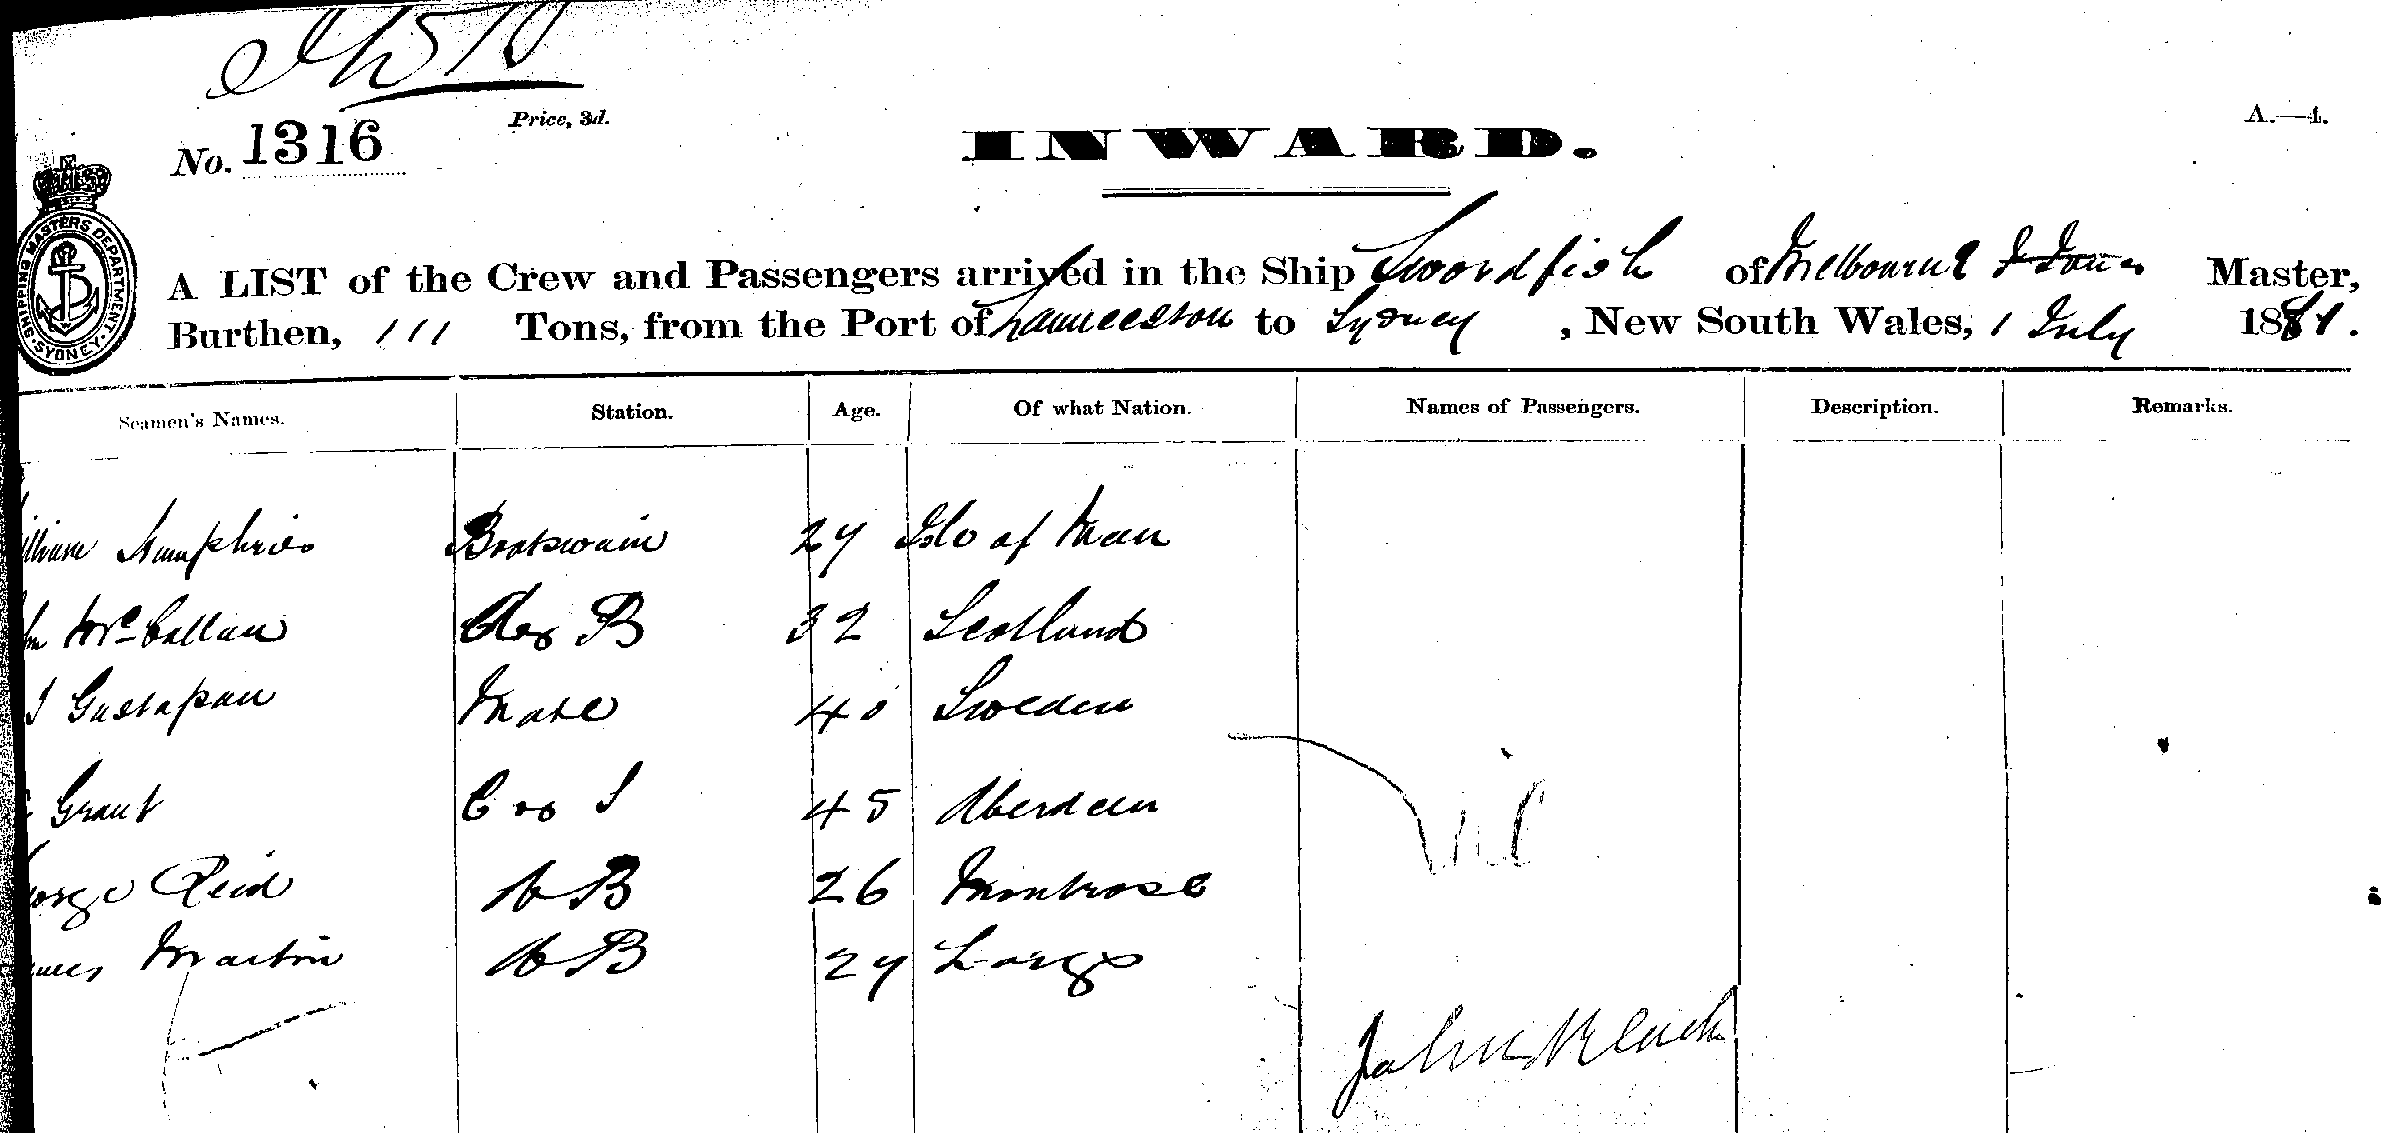 No. 1316
Price, 3d.
A.—4.
INWARD.
SHIPPING MASTERS DEPARTMENT · SYDNEY ·
A LIST of the Crew and Passengers arrived in the Ship Swordfish of Melbourne Master,
Burthen, 111 Tons, from the Port of Launceston to Sydney, New South Wales, 1 July 1881.
Seamen's Names. Station. Age. Of what Nation. Names of Passengers. Description. Remarks.
illiam Humphries Boatswain 27 Isle of Man
Mc Callan B 32 Scotland
Mate 40 Sweden
Grant 45 Aberdeen
eorge Reid A B 26 Montrose
Martin A B 27 Largs
Nil
John